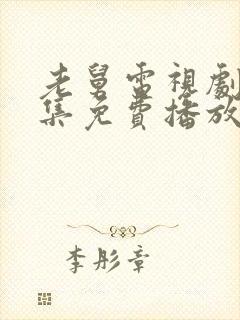 老舅電視劇
集免費播放
李彤章